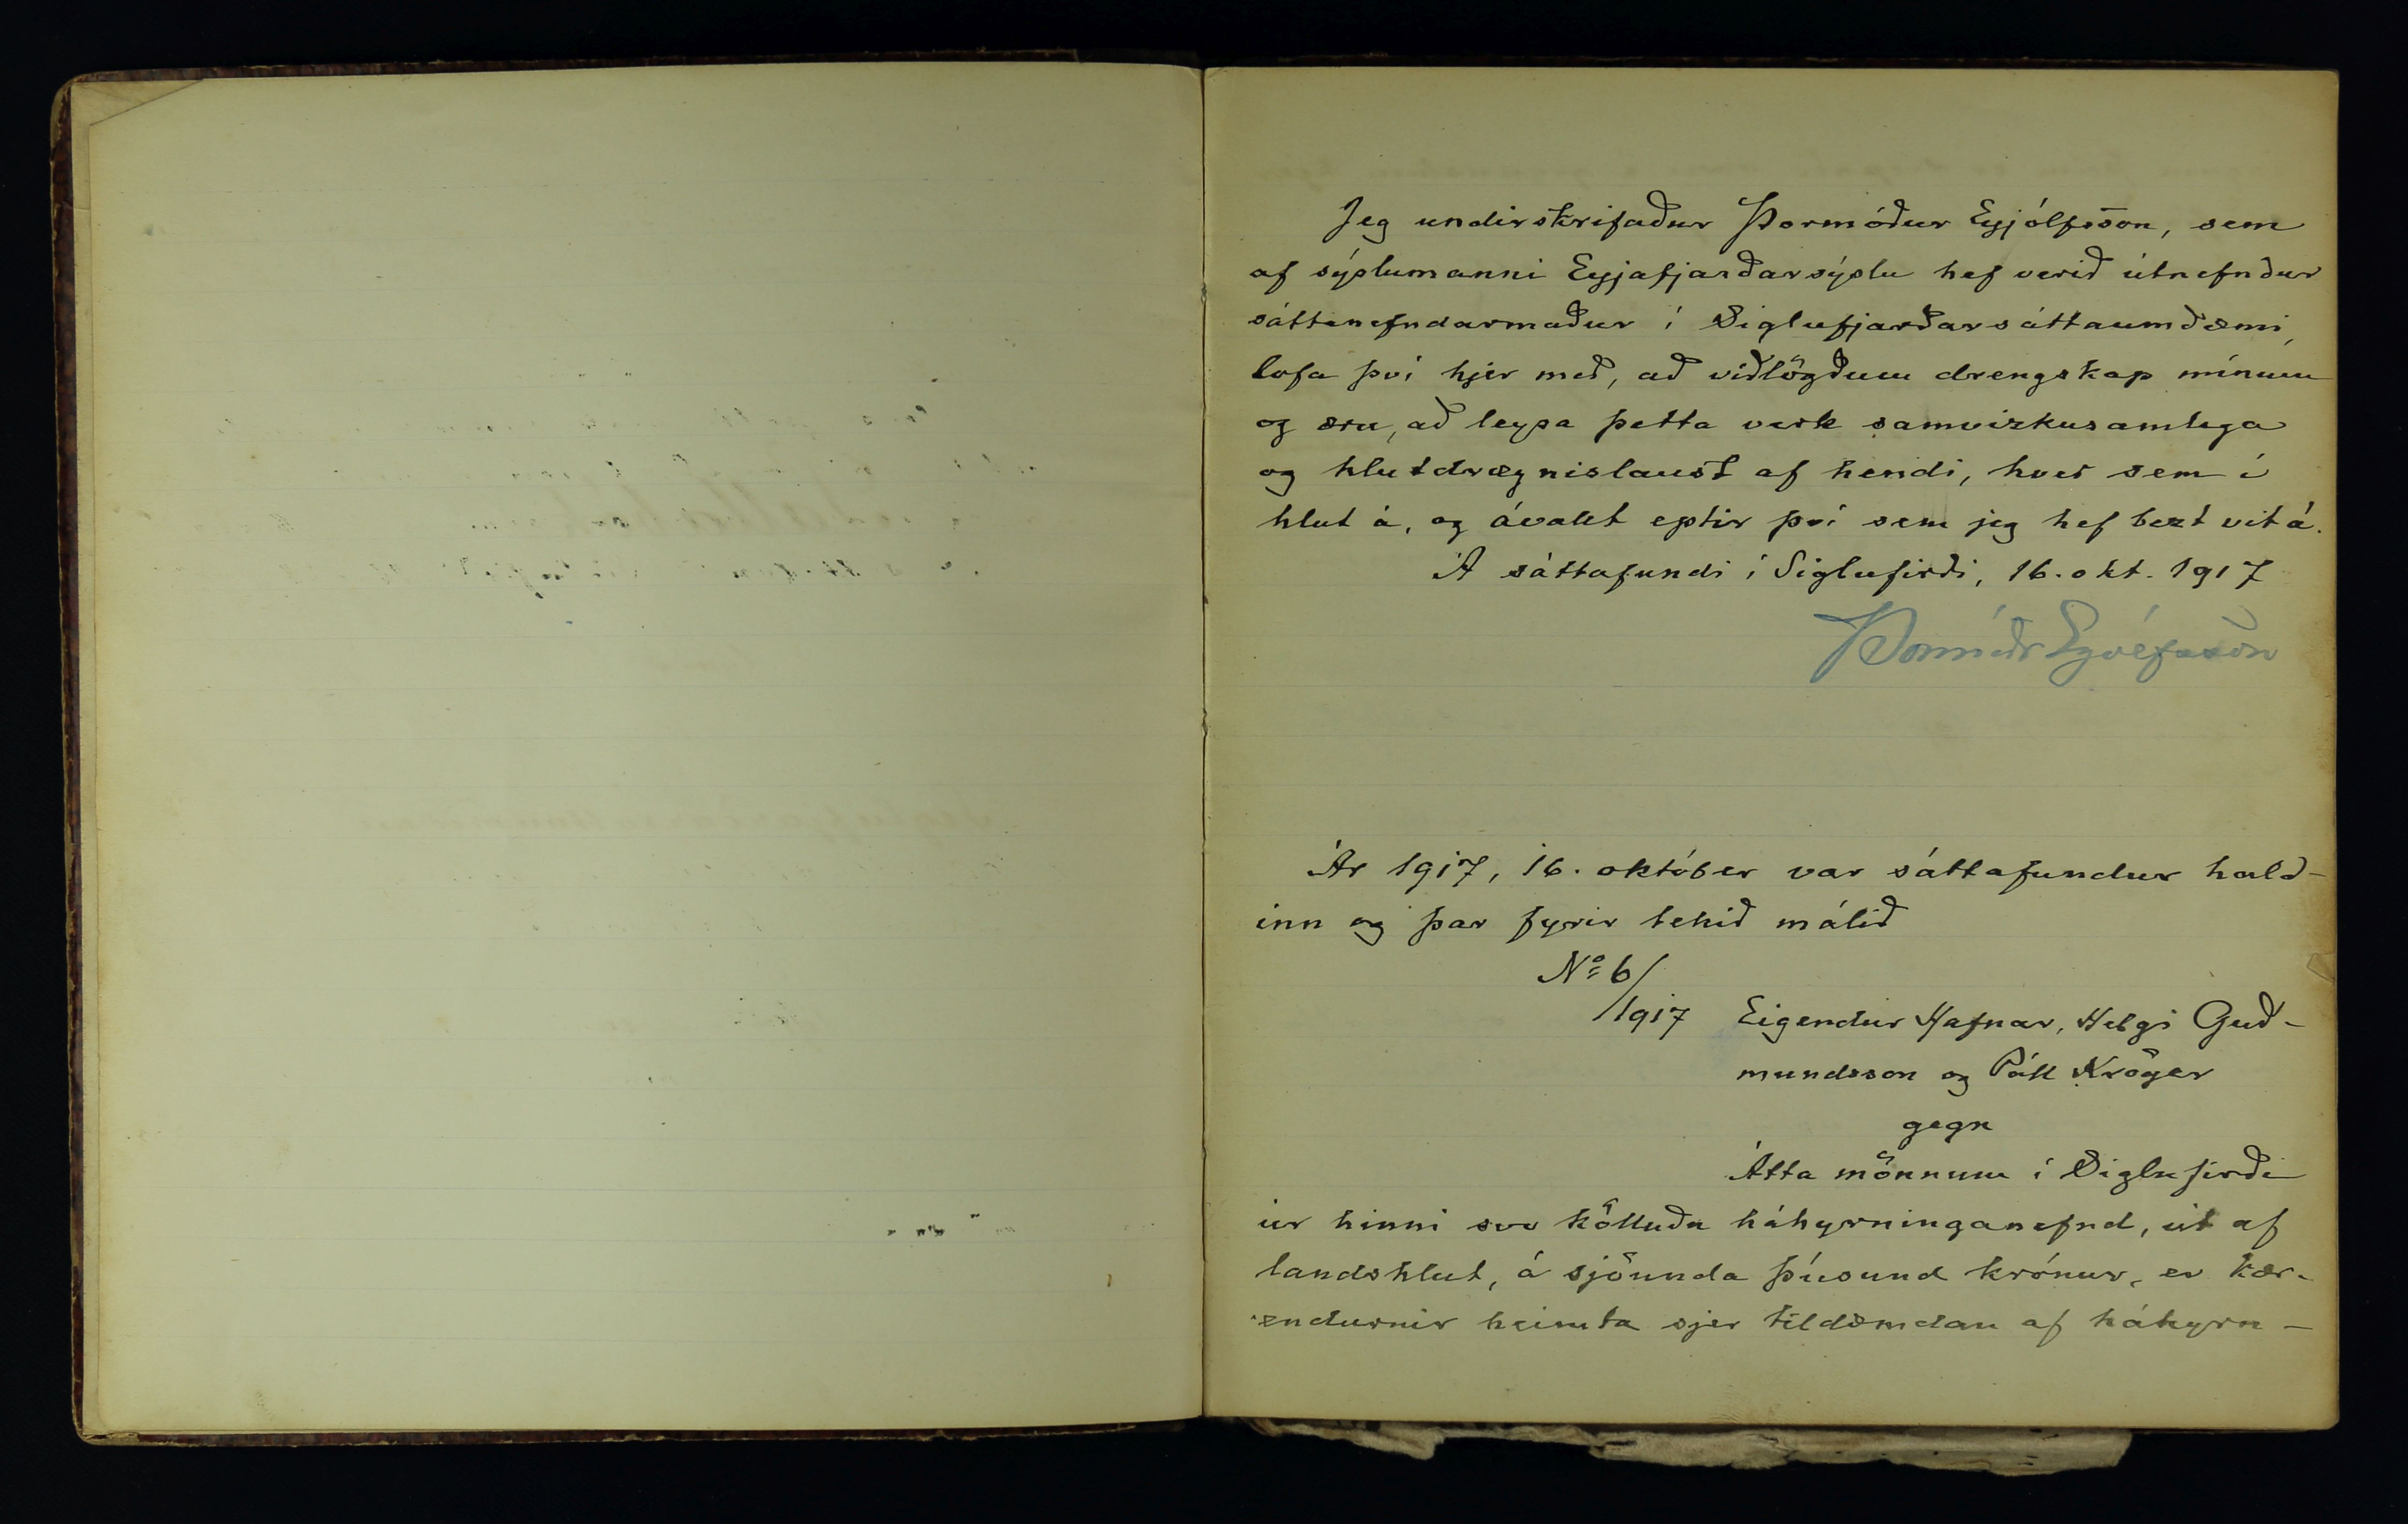 Jeg undirskrifaður Þormóður Eyjólfsson, sem
af sýslumanni Eyjafjarðarsýslu hef verið útnefndur
sáttanefndarmaður í Siglufjarðarsáttaumdæmi,
lofa því hjer með, að viðlögðum drengskap mínum
og æru, að leysa þetta verk samvizkusamlega
og hlutdrægnislaust af hendi, hver sem í
hlut á, og ávallt eptir því sem jeg hef bezt vit á.
Á sáttafundi í Siglufirði, 16. okt. 1917
Þormóðr Eyjólfsson
Ár 1917, 16. október var sáttafundur hald-
inn og þar fyrir tekið málið
No 6/1917 Eigendur Hafnar, Helgi Guð-
mundsson og Páll Kröyer
gegn
Átta mönnum í Siglufirði
úr hinni svo kölluðu háhyrninganefnd, út af
landshlut, á sjöunda þúsund krónur, er kær-
endurnir heimta sjer tildæmdan af háhyrn-